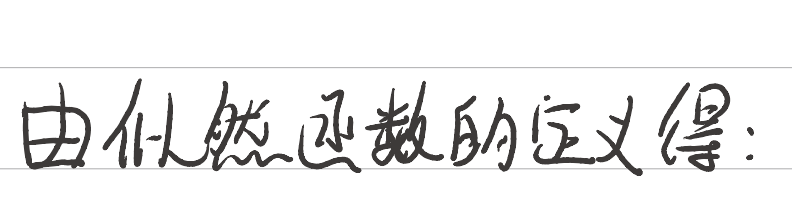 由似然函数的定义得：